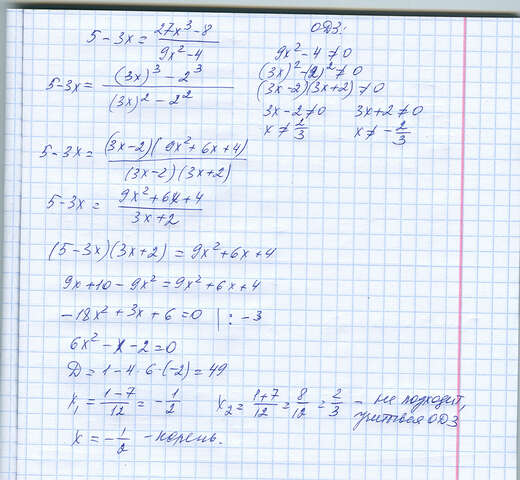 5-3x = (27x³-8)/(9x²-4)
ОДЗ:
9x²-4≠0
5-3x = ((3x)³-2³)/((3x)²-2²)
(3x)²-(2)²≠0
(3x-2)(3x+2)≠0
3x-2≠0 3x+2≠0
x≠2/3 x≠-2/3
5-3x = ((3x-2)(9x²+6x+4))/((3x-2)(3x+2))
5-3x = (9x²+6x+4)/(3x+2)
(5-3x)(3x+2) = 9x²+6x+4
9x+10-9x²=9x²+6x+4
-18x²+3x+6=0 | : -3
6x²-x-2=0
D=1-4·6·(-2)=49
x₁=(1-7)/12=-1/2 x₂=(1+7)/12=8/12=2/3 - не подходит,
учитывая ОДЗ
x=-1/2 -корень.